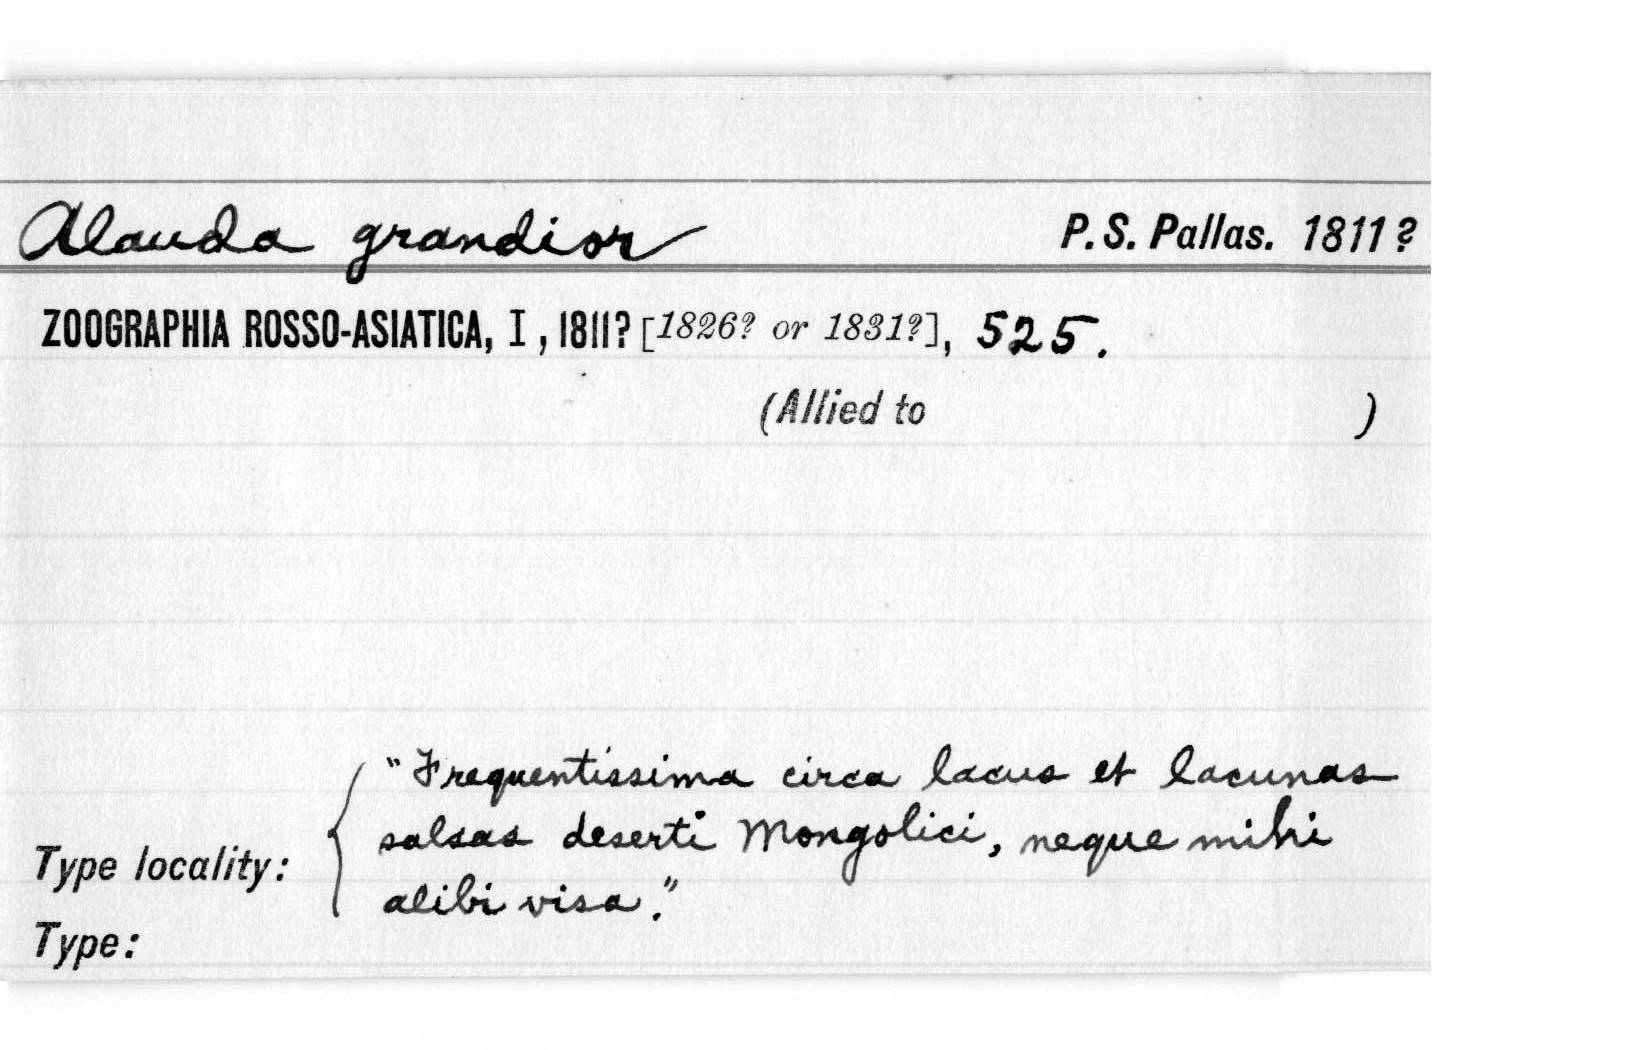 Alauda grandior P. S. Pallas. 1811?
ZOOGRAPHIA ROSSO-ASIATICA, I, 1811? [1826? or 1831?], 525.
(Allied to )
"Frequentissima circa lacus et lacunas
salsas deserti Mongolici, neque mihi
Type locality:
alibi visa."
Type: